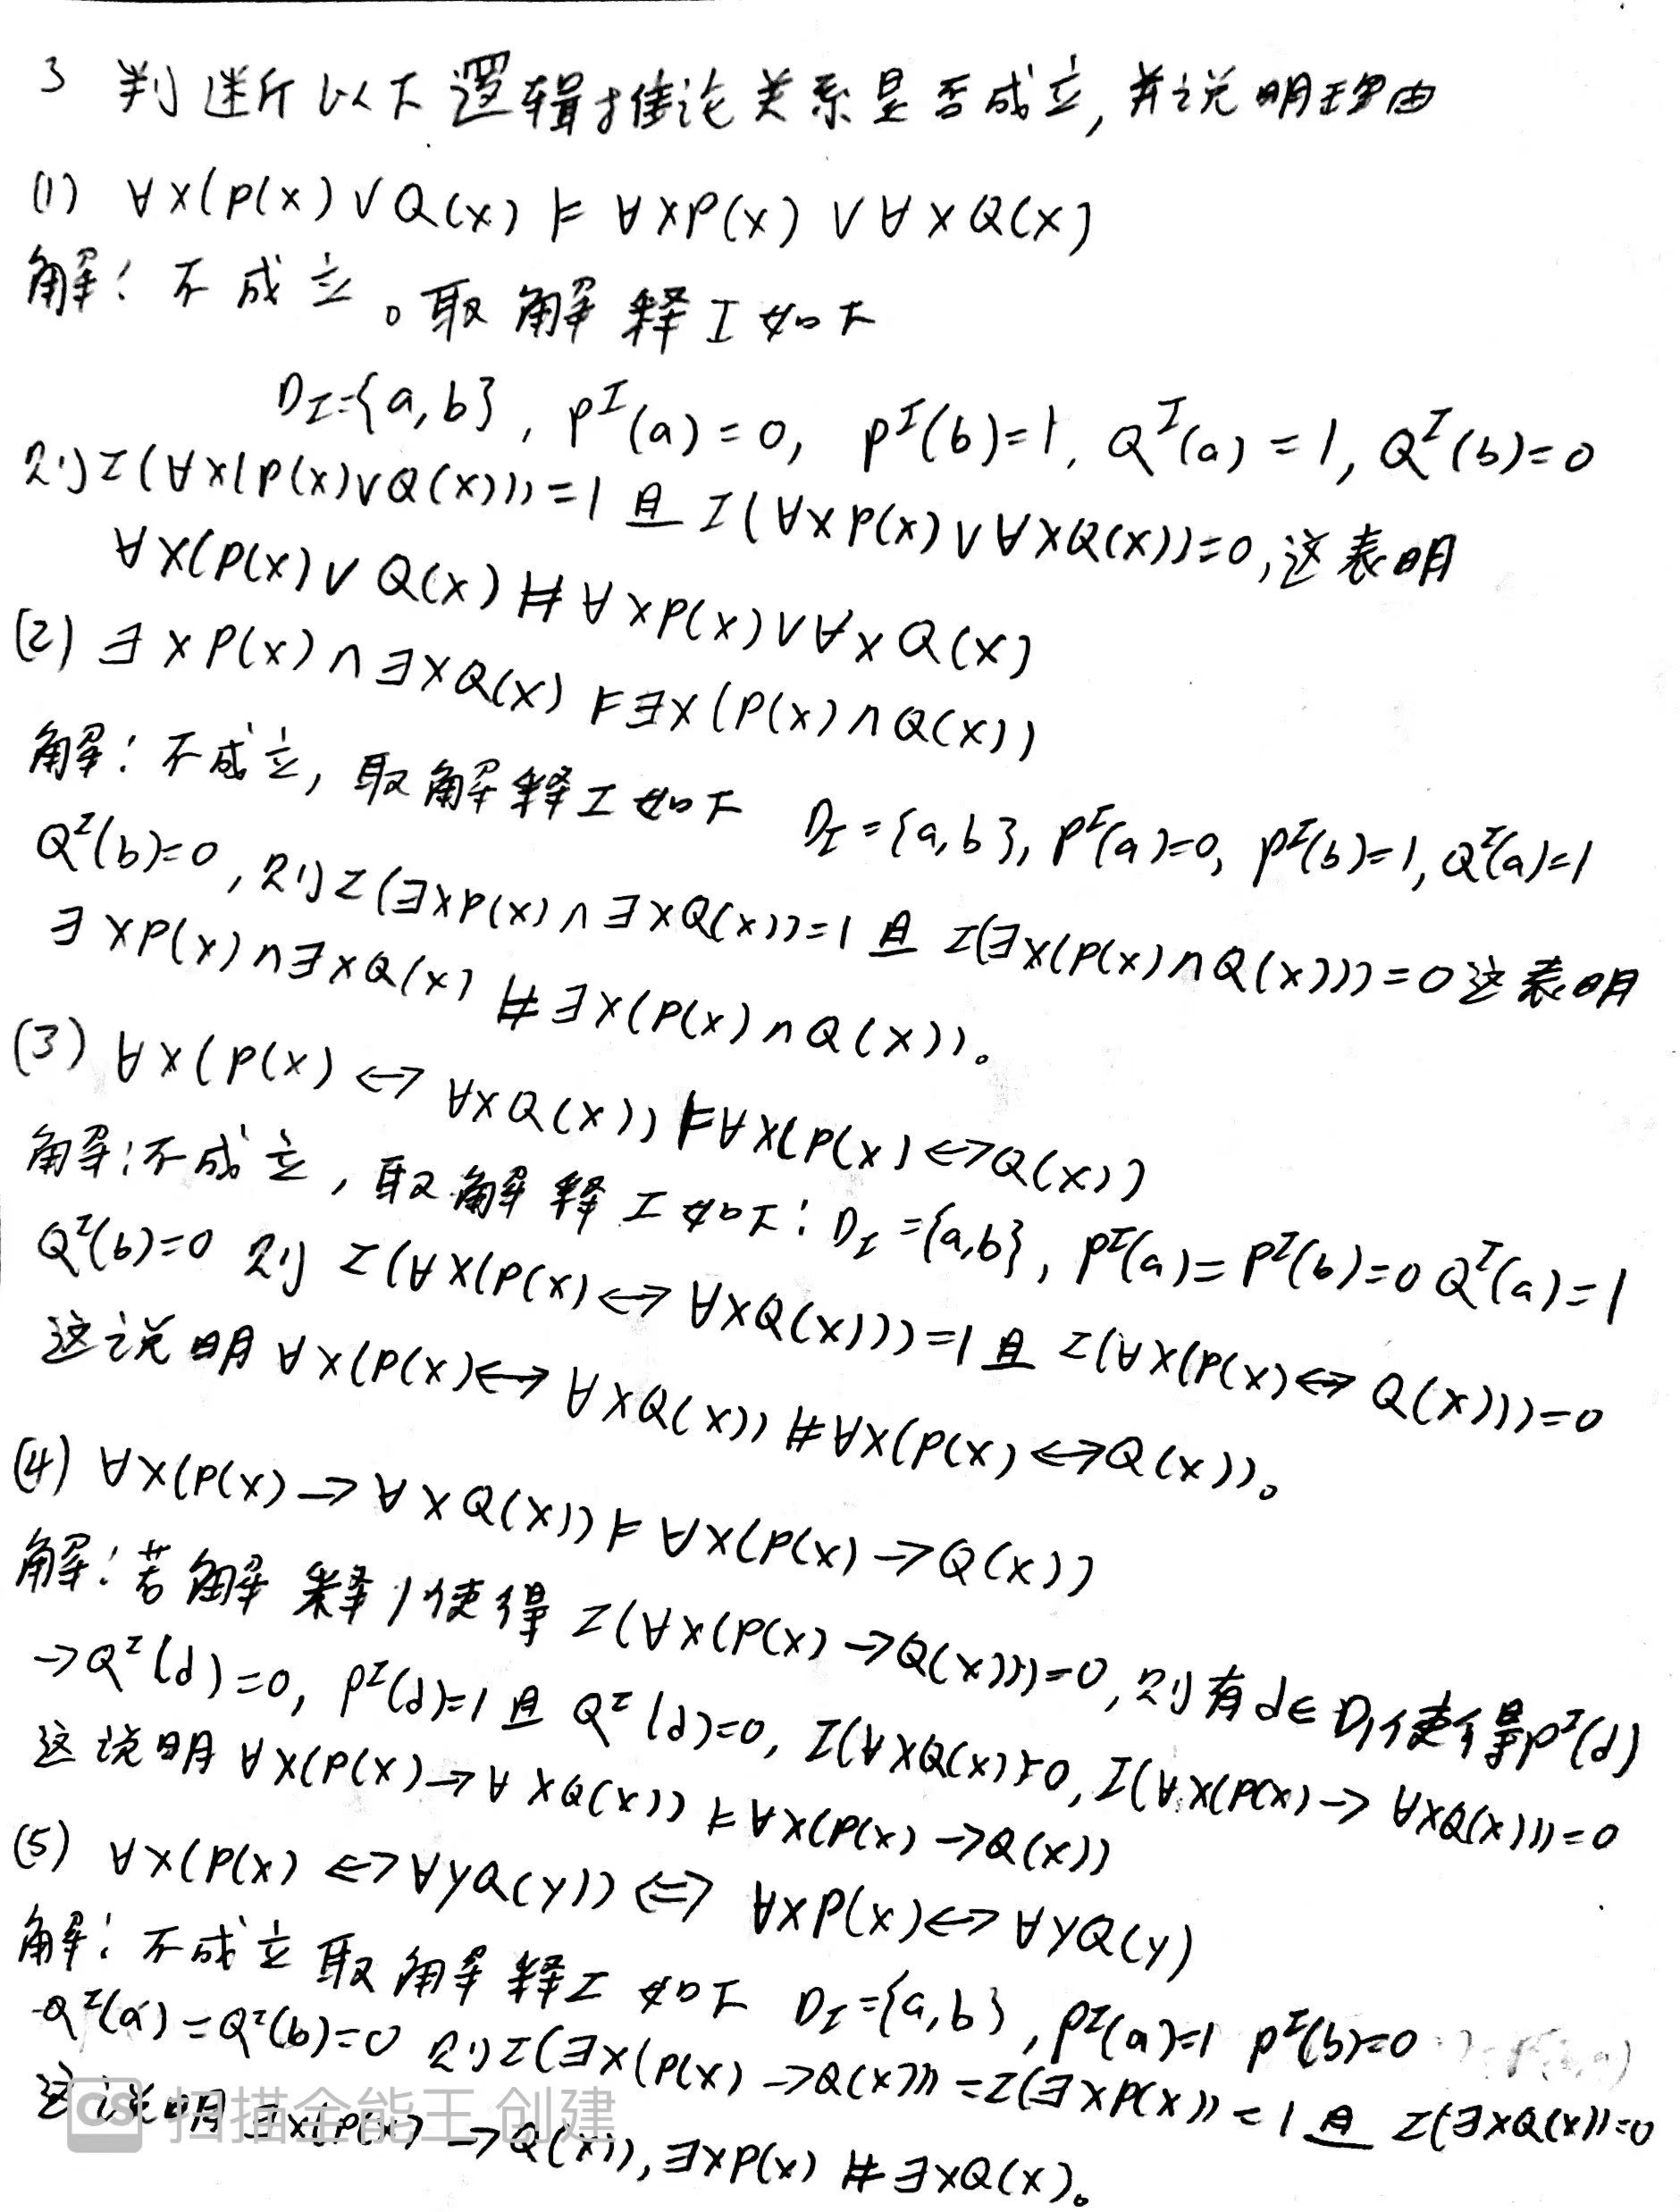 3 判断以下逻辑推论关系是否成立,并说明理由
(1) ∀x(P(x)∨Q(x) ⊨ ∀xP(x) ∨∀xQ(x)
解: 不成立。取解释I如下
D_I={a,b}, P^I(a)=0, P^I(b)=1, Q^I(a)=1, Q^I(b)=0
则I(∀x(P(x)∨Q(x)))=1 且 I(∀xP(x)∨∀xQ(x))=0,这表明
∀x(P(x)∨Q(x) ⊭ ∀xP(x)∨∀xQ(x)
(2) ∃xP(x)∧∃xQ(x) ⊨∃x(P(x)∧Q(x))
解: 不成立, 取解释I如下 D_I={a,b}, P^I(a)=0, P^I(b)=1, Q^I(a)=1
Q^I(b)=0, 则I(∃xP(x)∧∃xQ(x))=1 且 I(∃x(P(x)∧Q(x)))=0这表明
∃xP(x)∧∃xQ(x) ⊭ ∃x(P(x)∧Q(x))。
(3) ∀x(P(x)↔∀xQ(x)) ⊨∀x(P(x)↔Q(x))
解:不成立, 取解释I如下: D_I={a,b}, P^I(a)=P^I(b)=0 Q^I(a)=1
Q^I(b)=0 则 I(∀x(P(x)↔∀xQ(x)))=1 且 I(∀x(P(x)↔Q(x)))=0
这说明∀x(P(x)↔∀xQ(x)) ⊭∀x(P(x)↔Q(x))。
(4) ∀x(P(x)→∀xQ(x)) ⊨ ∀x(P(x)→Q(x))
解:若解释I使得 I(∀x(P(x)→Q(x)))=0, 则有d∈D_I使得P^I(d)
→Q^I(d)=0, P^I(d)=1 且 Q^I(d)=0, I(∀xQ(x))=0, I(∀x(P(x)→∀xQ(x)))=0
这说明∀x(P(x)→∀xQ(x)) ⊨∀x(P(x)→Q(x))
(5) ∀x(P(x)↔∀yQ(y)) ⇔ ∀xP(x)↔∀yQ(y)
解: 不成立 取解释I如下 D_I={a,b}, P^I(a)=1 P^I(b)=0
Q^I(a)=Q^I(b)=0 则I(∃x(P(x)→Q(x)))=I(∃xP(x))=1 且 I(∃xQ(x))=0
这说明∃x(P(x)→Q(x)), ∃xP(x) ⊭ ∃xQ(x)。
CS 扫描全能王 创建